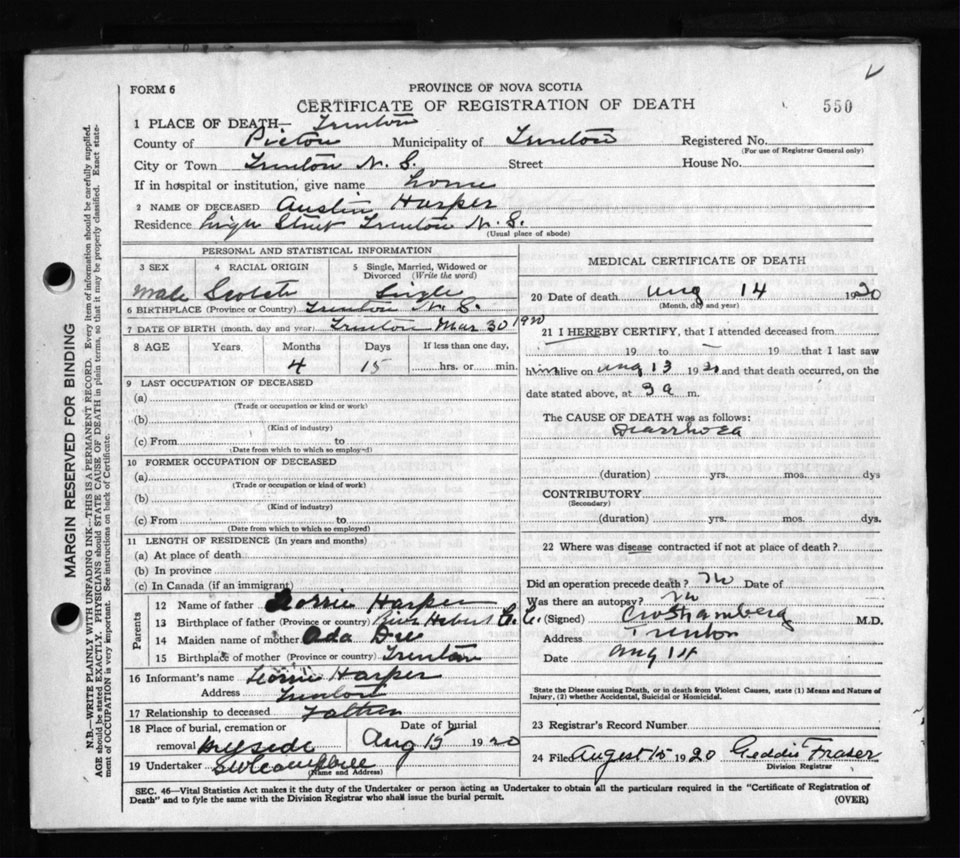 FORM 6
PROVINCE OF NOVA SCOTIA
CERTIFICATE OF REGISTRATION OF DEATH
550
1 PLACE OF DEATH— Trenton
County of Pictou Municipality of Trenton Registered No.
(For use of Registrar General only)
City or Town Trenton N. S. Street House No.
If in hospital or institution, give name home
2 NAME OF DECEASED Austin Harper
Residence Street Trenton N. S.
(Usual place of abode)
PERSONAL AND STATISTICAL INFORMATION
3 SEX 4 RACIAL ORIGIN 5 Single, Married, Widowed or Divorced (Write the word)
Male Scotch Single
6 BIRTHPLACE (Province or Country) Trenton N. S.
7 DATE OF BIRTH (month, day and year) Trenton Mar 30 1920
8 AGE Years Months Days If less than one day,
4 15 hrs. or min.
9 LAST OCCUPATION OF DECEASED
(a)
(Trade or occupation or kind or work)
(b)
(Kind of industry)
(c) From to
(Date from which to which so employed)
10 FORMER OCCUPATION OF DECEASED
(a)
(Trade or occupation or kind of work)
(b)
(Kind of industry)
(c) From to
(Date from which to which so employed)
11 LENGTH OF RESIDENCE (In years and months)
(a) At place of death
(b) In province
(c) In Canada (if an immigrant)
Parents
12 Name of father Harper
13 Birthplace of father (Province or country) River Hebert
14 Maiden name of mother Ada
15 Birthplace of mother (Province or country) Trenton
16 Informant's name Harper
Address Trenton
17 Relationship to deceased Father
18 Place of burial, cremation or removal Hillside
Date of burial Aug 15 1920
19 Undertaker Campbell
(Name and Address)
MEDICAL CERTIFICATE OF DEATH
20 Date of death Aug 14 1920
(Month, day and year)
21 I HEREBY CERTIFY, that I attended deceased from
19 to 19 that I last saw
him alive on Aug 13 1920 and that death occurred, on the
date stated above, at 3 a m.
The CAUSE OF DEATH was as follows:
Diarrhoea
(duration) yrs. mos. dys
CONTRIBUTORY
(Secondary)
(duration) yrs. mos. dys.
22 Where was disease contracted if not at place of death?
Did an operation precede death? no Date of
Was there an autopsy? no
(Signed) M.D.
Address Trenton
Date Aug
State the Disease causing Death, or in death from Violent Causes, state (1) Means and Nature of
Injury, (2) whether Accidental, Suicidal or Homicidal.
23 Registrar's Record Number
24 Filed August 15 1920 Geddie Fraser
Division Registrar
SEC. 46—Vital Statistics Act makes it the duty of the Undertaker or person acting as Undertaker to obtain all the particulars required in the "Certificate of Registration of
Death" and to fyle the same with the Division Registrar who shall issue the burial permit. (OVER)
MARGIN RESERVED FOR BINDING
N.B.—WRITE PLAINLY WITH UNFADING INK—THIS IS A PERMANENT RECORD. Every item of information should be carefully supplied.
AGE should be stated EXACTLY. PHYSICIANS should STATE CAUSE OF DEATH in plain terms, so that it may be properly classified. Exact state-
ment of OCCUPATION is very important. See instructions on back of Certificate.